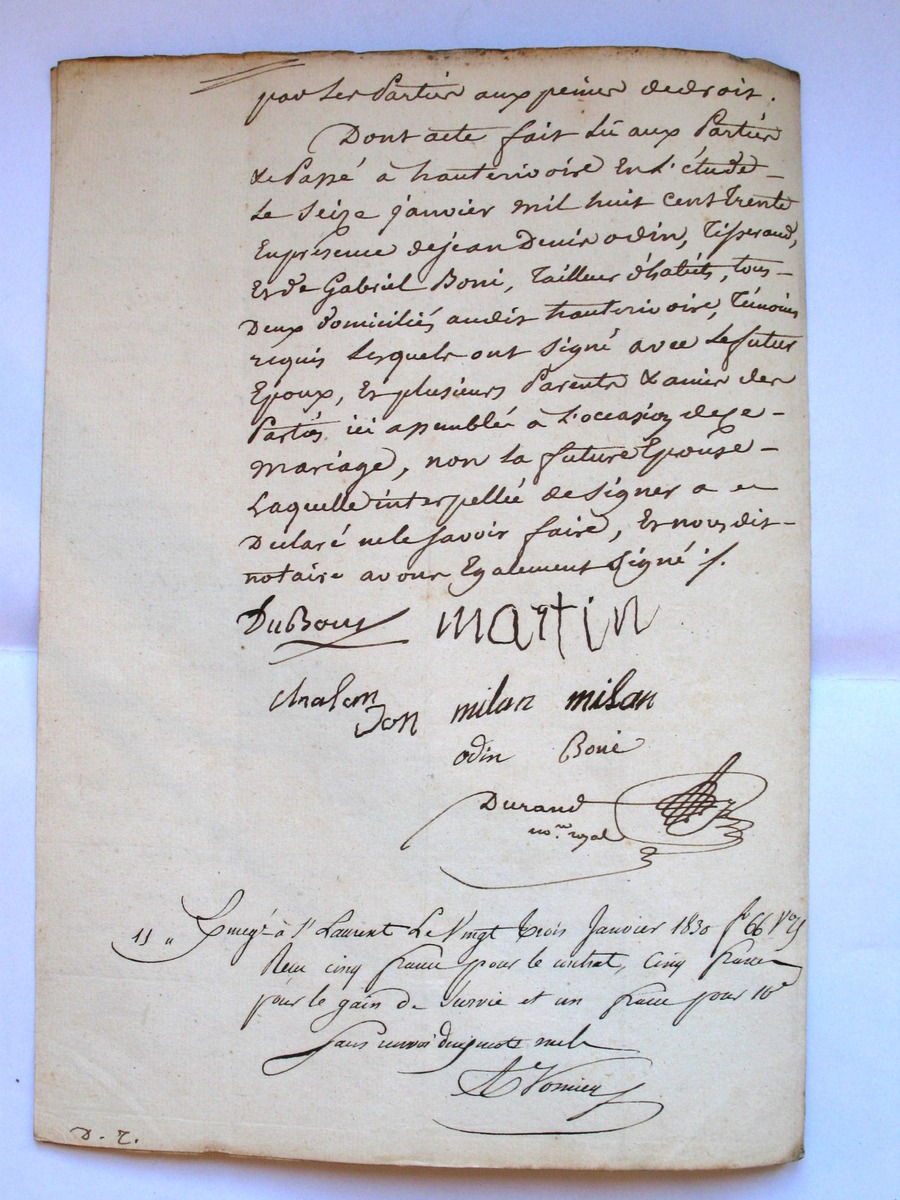 par les Parties aux peines de droit.
Dont acte fait Lu aux Parties
& Passé à hauterivoire En l'étude
Le Seize janvier mil huit cent Trente
En présence de jean Denis odin, Tisserand,
Et de Gabriel Boni, Tailleur d'habits, tous
Deux domiciliés audit hauterivoire, Témoins
requis Lesquels ont Signé avec Le futur
Epoux, Et plusieurs Parents & amis des
Partis ici assemblés à L'occasion de Ce
mariage, non La future Epouse
Laquelle interpellée de Signer a
Declaré ne le Savoir faire, Et nous dit
notaire avons Egalement Signé ./.
DuBouy martin
Chalon
Jon milan milan
odin Boni
Durand
no.re royal
11 Enregé à St Laurent Le Vingt trois Janvier 1830 fo 66 Vo
Reçu cinq francs pour le contrat, Cinq francs
pour le gain de Survie et un franc pour 10e
Sans renvoi
D. T.